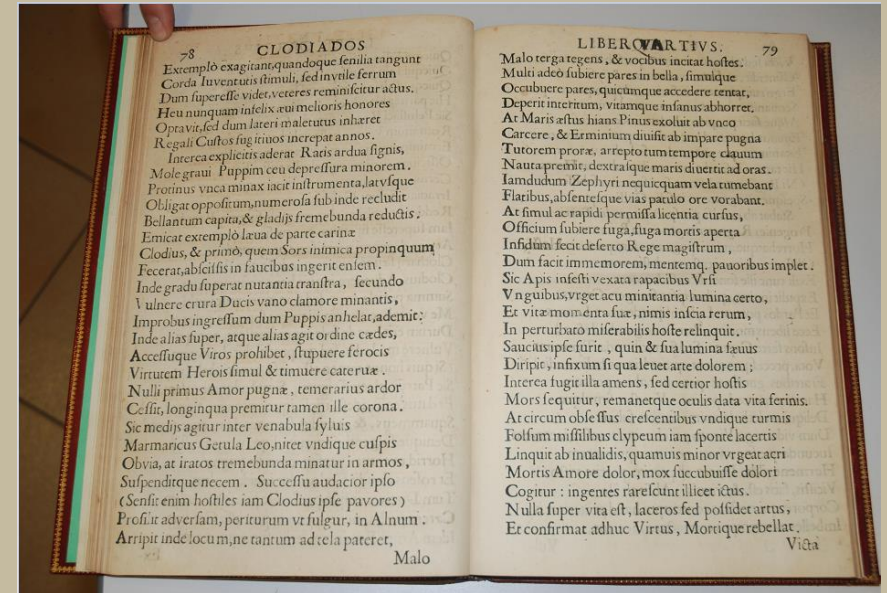 78
CLODIADOS
Extemplò exagitant, quandoque senilia tangunt
Corda Iuventutis stimuli, sed invtile ferrum
Dum superesse videt, veteres reminiscitur actus.
Heu nunquam infelix æui melioris honores
Optavit, sed dum lateri maletutus inhæret
Regali Custos fugitiuos increpat annos.
Interea explicitis aderat Ratis ardua signis,
Mole graui Puppim ceu depressura minorem.
Protinus vnca minax iacit instrumenta, latvsque
Obligat oppositum, numerosa sub inde recludit
Bellantum capita, & gladijs fremebunda reductis.
Emicat extemplò læua de parte carinæ
Clodius, & primò, quem Sors inimica propinquum
Fecerat, abscissis in faucibus ingerit ensem.
Inde gradu superat nutantia transtra, secundo
Vulnere crura Ducis vano clamore minantis,
Improbus ingressum dum Puppis anhelat, ademit:
Inde alias super, atque alias agit ordine cædes,
Accessuque Viros prohibet, stupuere ferocis
Virtutem Herois simul & timuere cateruæ.
Nulli primus Amor pugnæ, temerarius ardor
Cessit, longinqua premitur tamen ille corona.
Sic medijs agitur inter venabula syluis
Marmaricus Getula Leo, nitet vndique cuspis
Obvia, at iratos tremebunda minatur in armos,
Suspenditque necem. Successu audacior ipso
(Sensit enim hostiles iam Clodius ipse pavores)
Prosilit adversam, periturum vt fulgur, in Alnum.
Arripit inde locum, ne tantum ad tela pateret,
Malo
LIBER QVARTIVS.
79
Malo terga tegens, & vocibus incitat hostes.
Multi adeò subiere pares in bella, simulque
Occubuere pares, quicumque accedere tentat,
Deperit interitum, vitamque insanus abhorret.
At Maris æstus hians Pinus exoluit ab vnco
Carcere, & Erminium diuisit ab impare pugna
Tutorem proræ, arrepto tum tempore clauum
Nauta premit, dextrasque maris diuertit ad oras.
Iamdudum Zephyri nequicquam vela tumebant
Flatibus, absentesque vias patulo ore vorabant.
At simul ac rapidi permissa licentia cursus,
Officium subiere fuga, fuga mortis aperta
Infidum fecit deserto Rege magistrum,
Dum facit immemorem, mentemq. pauoribus implet.
Sic Apis infesti vexata rapacibus Vrsi
Vnguibus, vrget acu minitantia lumina certo,
Et vitæ momenta suæ, nimis inscia rerum,
In perturbato miserabilis hoste relinquit.
Saucius ipse furit, quin & sua lumina sæuus
Diripit, infixum si qua leuet arte dolorem;
Interea fugit illa amens, sed certior hostis
Mors sequitur, remanetque oculis data vita ferinis.
At circum obsessus crescentibus vndique turmis
Fossum missilibus clypeum iam sponte lacertis
Linquit ab inualidis, quamuis minor vrgeat acri
Mortis Amore dolor, mox succubuisse dolori
Cogitur: ingentes rarescunt illicet ictus.
Nulla super vita est, laceros sed possidet artus,
Et confirmat adhuc Virtus, Mortique rebellat.
Victa